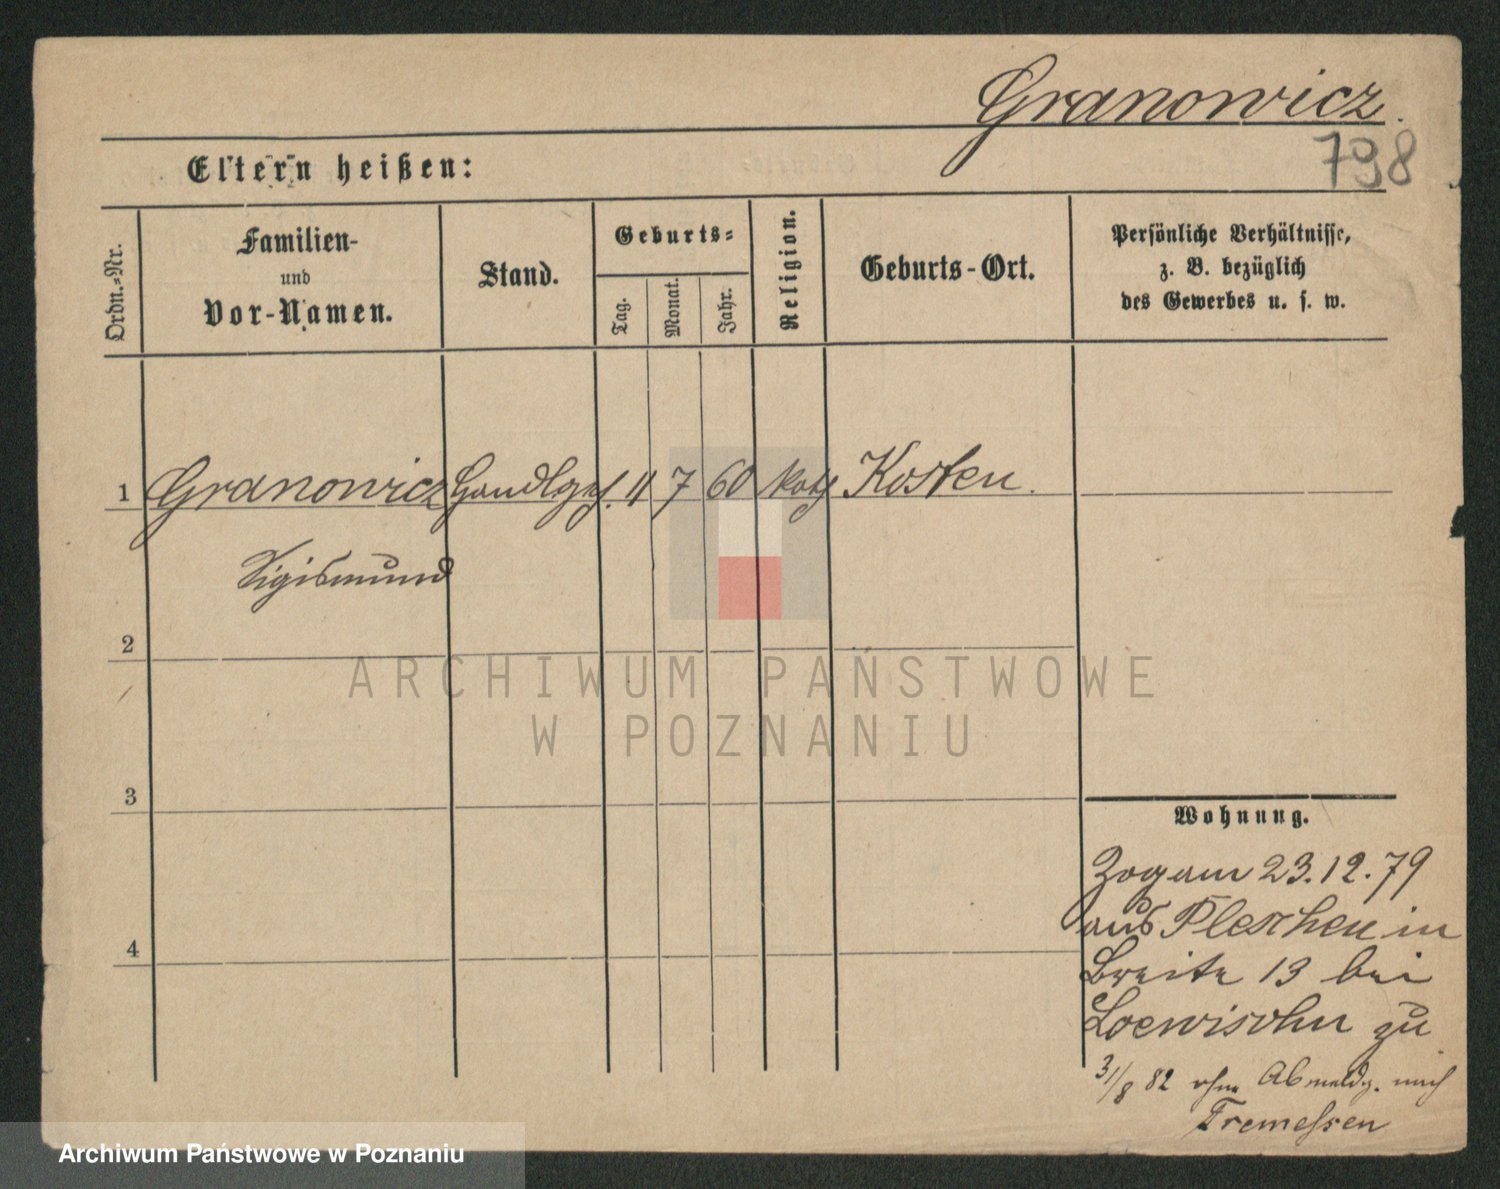 Granowicz.
798
Eltern heißen:
Ordn.-Nr.
Familien-
und
Vor-Namen.
Stand.
Geburts-
Tag.
Monat.
Jahr.
Religion.
Geburts-Ort.
Persönliche Verhältnisse,
z. B. bezüglich
des Gewerbes u. s. w.
1 Granowicz Handlgsf. 11 7 60 kath Kosten.
Sigismund
2
3
4
ARCHIWUM PAŃSTWOWE
W POZNANIU
Wohnung.
Zog am 23.12.79
aus Pleschen in
Breite 13 bei
Loewisohn zu
31/8 82 ohne Abmeldg. nach
Tremeſsen
Archiwum Państwowe w Poznaniu